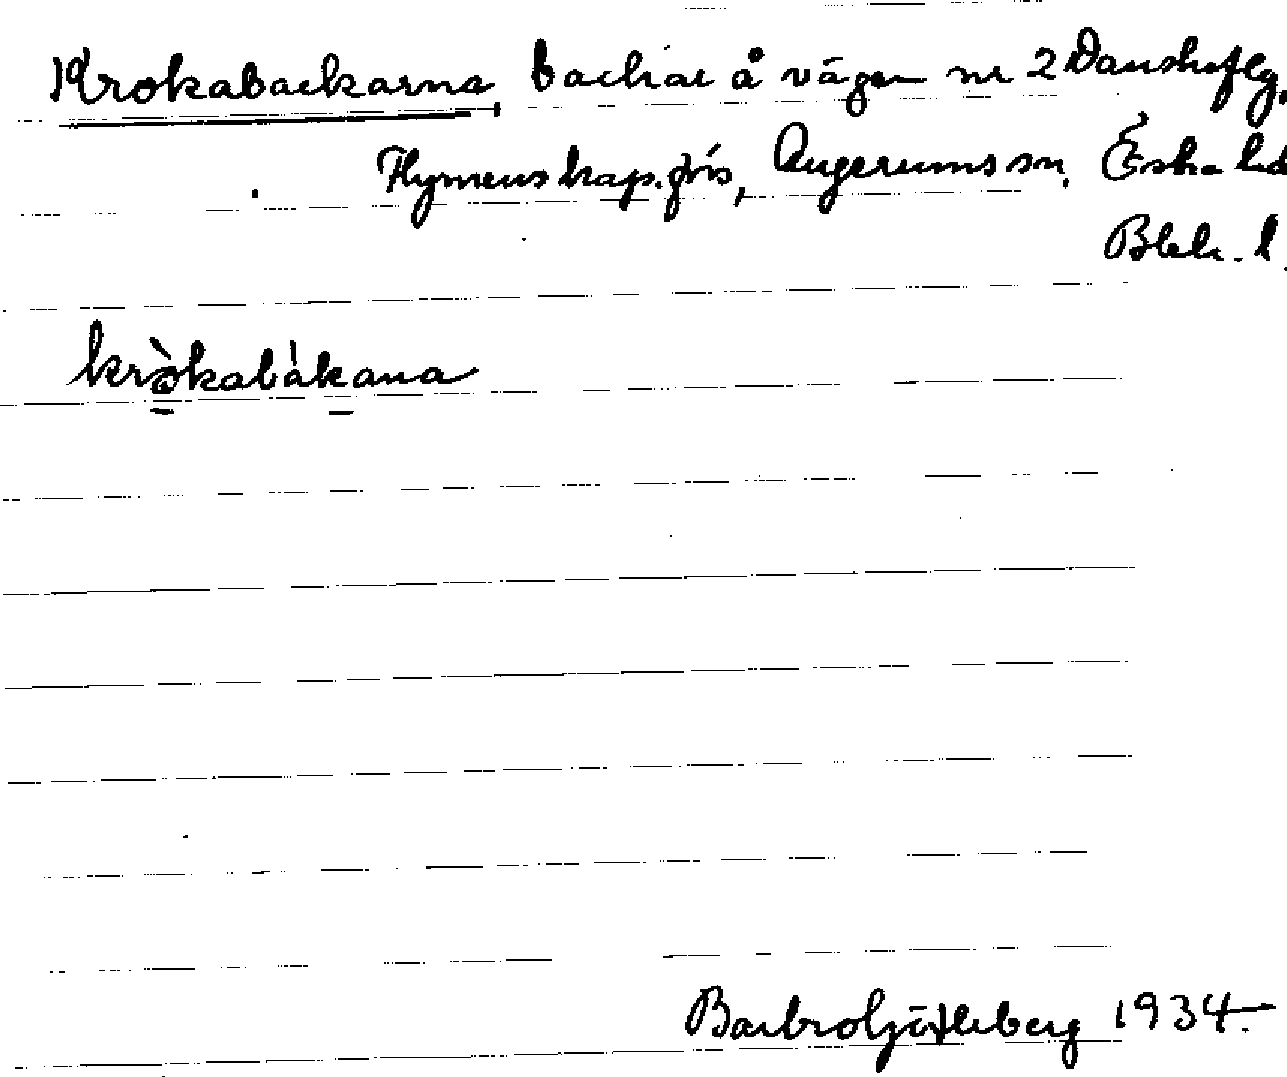 Krokabackarna, backar å vägen nr 2 Danskeflg,
Flymens kap. förs, Augerums sn. Östra hd
Blek. l.
kròkabàkana
Barbro Götleberg 1934.